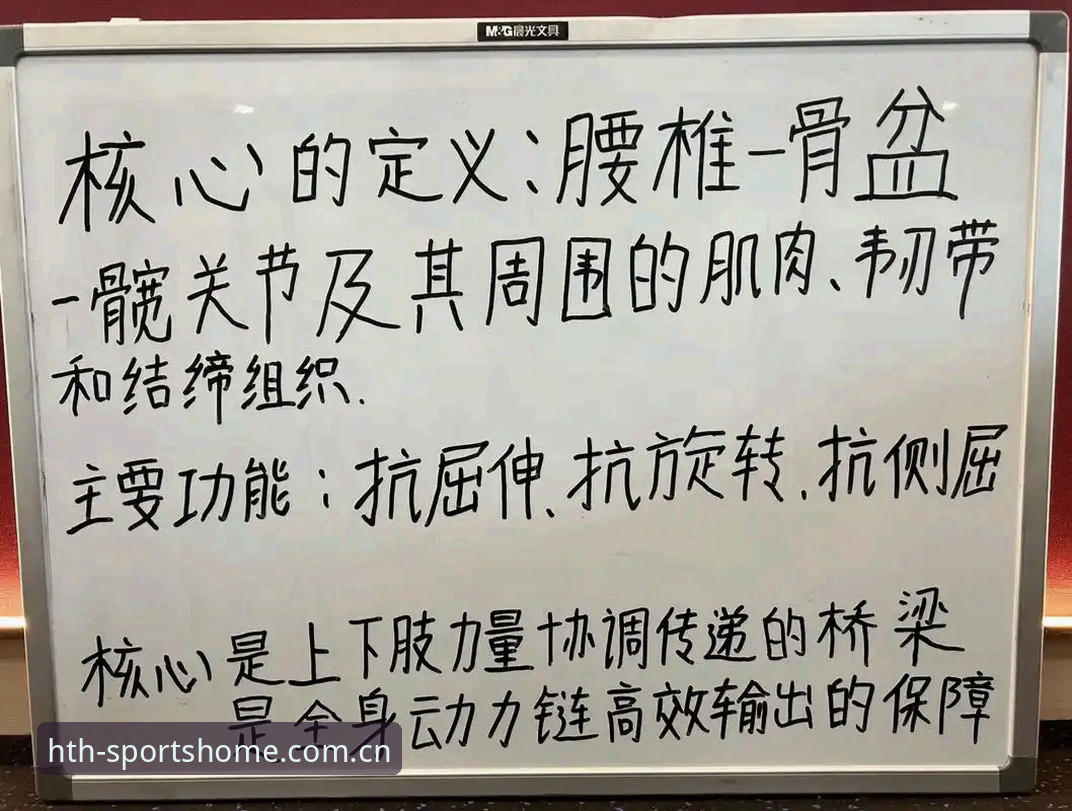 M&G晨光文具
核心的定义:腰椎-骨盆
-髋关节及其周围的肌肉、韧带
和结缔组织.
主要功能:抗屈伸、抗旋转、抗侧屈
核心是上下肢力量协调传递的桥梁
是全身动力链高效输出的保障
hth-sportshome.com.cn